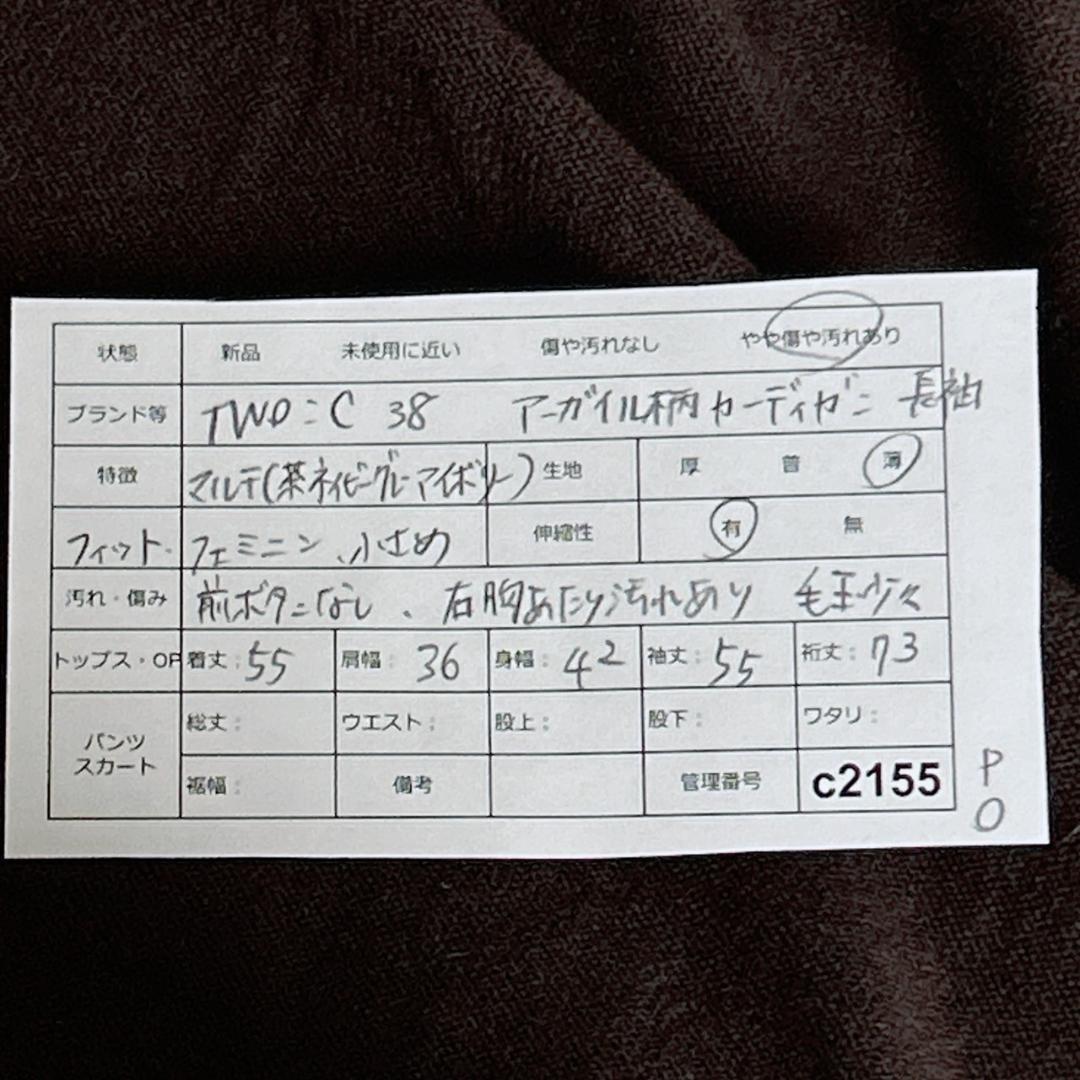 状態 新品 未使用に近い 傷や汚れなし やや傷や汚れあり
ブランド等 TWO:C 38 アーガイル柄カーディガン 長袖
特徴 マルチ(茶ネイビーグレーアイボリー) 生地 厚 普 薄
フィット フェミニン、小さめ 伸縮性 有 無
汚れ・傷み 前ボタンなし、右胸あたり汚れあり 毛玉少々
トップス・OP 着丈:55 肩幅:36 身幅:42 袖丈:55 裄丈:73
パンツ スカート 総丈: ウエスト: 股上: 股下: ワタリ:
裾幅: 備考 管理番号 c2155
P
O